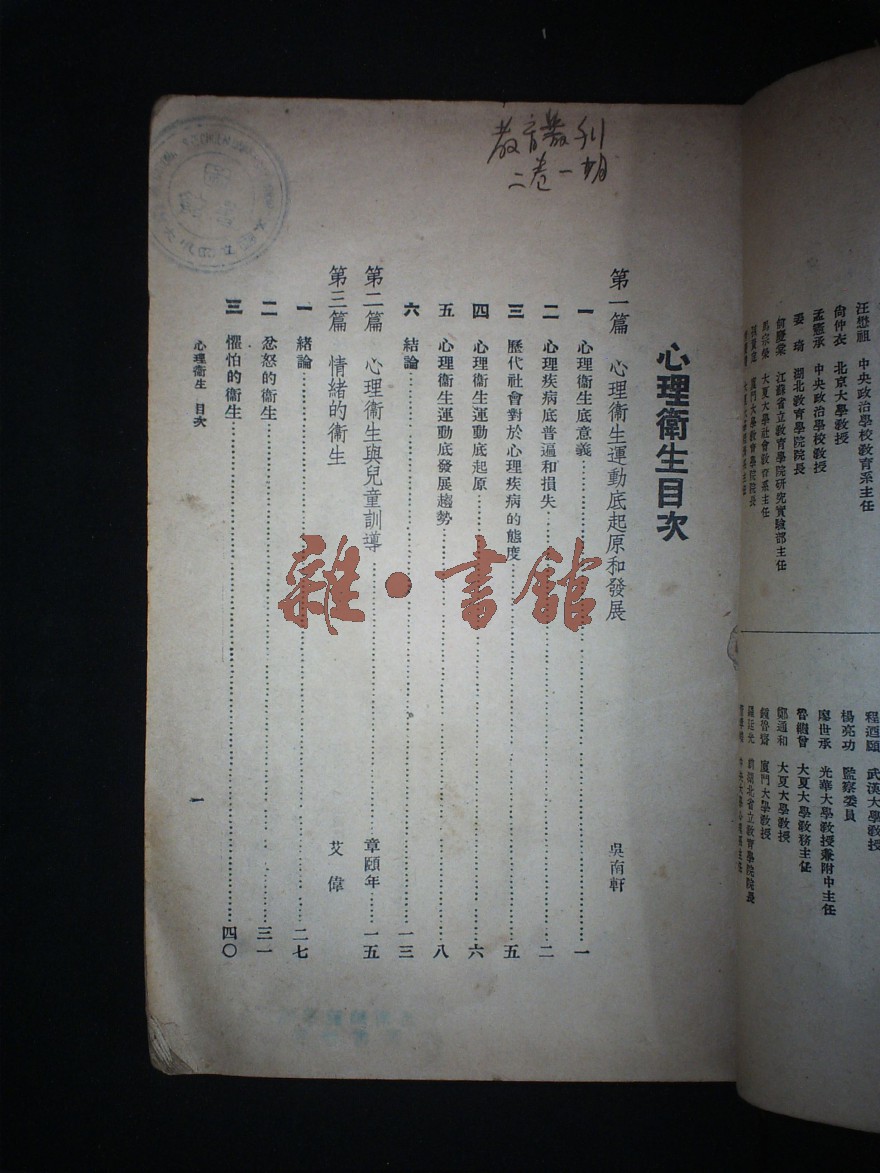 汪懋祖 中央政治學校教育系主任
尙仲衣 北京大學教授
孟憲承 中央政治學校教授
姜琦 湖北教育學院院長
何慶棠 江蘇省立教育學院研究實驗部主任
馬宗榮 大夏大學社會教育系主任
廈門大學教育學院院長
程迺頤 武漢大學教授
楊亮功 監察委員
廖世承 光華大學教授兼附中主任
魯繼曾 大夏大學教務主任
鄭通和 大夏大學教授
鍾魯齋 廈門大學教授
羅廷光 前湖北省立教育學院院長
教育叢刊
二卷一期
心理衞生目次
第一篇 心理衞生運動底起原和發展 吳南軒
一 心理衞生底意義 一
二 心理疾病底普遍和損失 二
三 歷代社會對於心理疾病的態度 五
四 心理衞生運動底起原 六
五 心理衞生運動底發展趨勢 八
六 結論 一三
第二篇 心理衞生與兒童訓導 章頤年 一五
第三篇 情緒的衞生 艾偉
一 緒論 二七
二 忿怒的衞生 三一
三 懼怕的衞生 四〇
心理衞生 目次
一
雜·書館